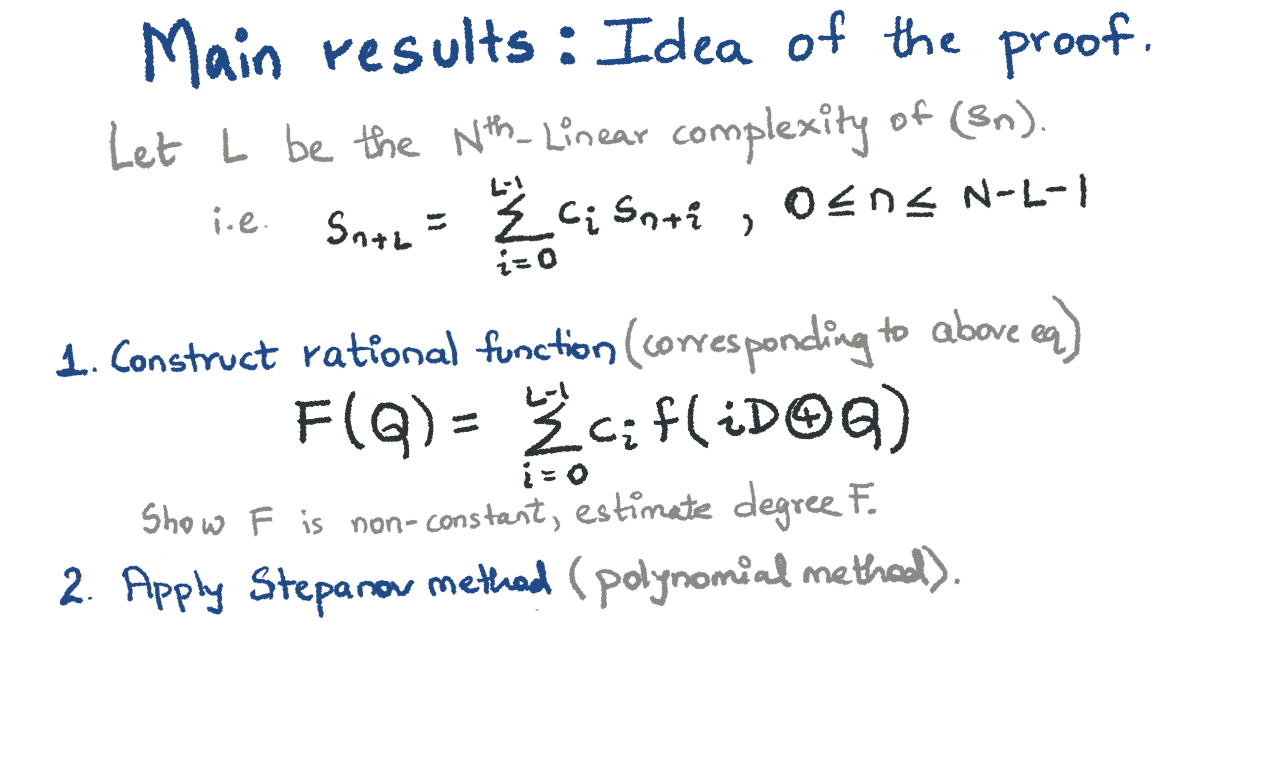 Main results: Idea of the proof.
Let L be the Nth-Linear complexity of (Sn).
i.e. S_{n+L} = \sum_{i=0}^{L-1} c_i S_{n+i} , 0 ≤ n ≤ N-L-1
1. Construct rational function (corresponding to above eq)
F(Q) = \sum_{i=0}^{L-1} c_i f(iD⊕Q)
Show F is non-constant, estimate degree F.
2. Apply Stepanov method (polynomial method).